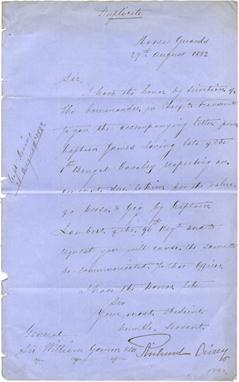 Duplicate
Horse Guards
29th August 1852
Sir,
I have the honor by direction of
the Commander in Chief to transmit
to you the accompanying letter from
Captain James Loving late of the
1st Bengal Cavalry respecting an
due to him for the value
a horse & Gig by Captain
Lambert of the 96th Regt and to
request you will cause the same to
be communicated to that Officer
I have the honor to be
Sir
Your most obedient
humble Servant
General
Sir William Gomm KCB